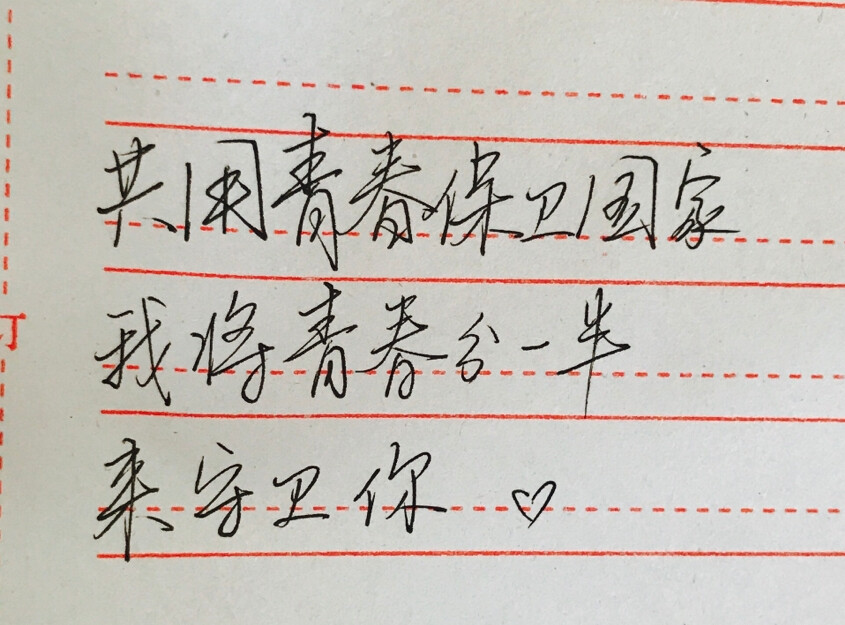 共用青春保卫国家
我将青春分一半
来守卫你 ♡